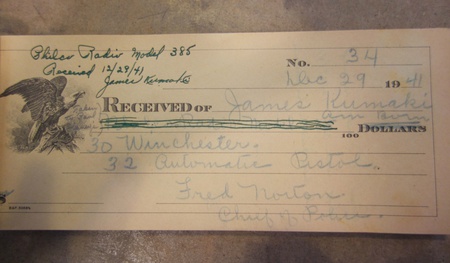 Philco Radio Model 385
Received 12/29/41
James Kumaki
No. 34
Dec 29 1941
RECEIVED OF James Kumaki
am Born
100 DOLLARS
30 Winchester.
32 Automatic Pistol.
Fred Norton
Chief of Police.